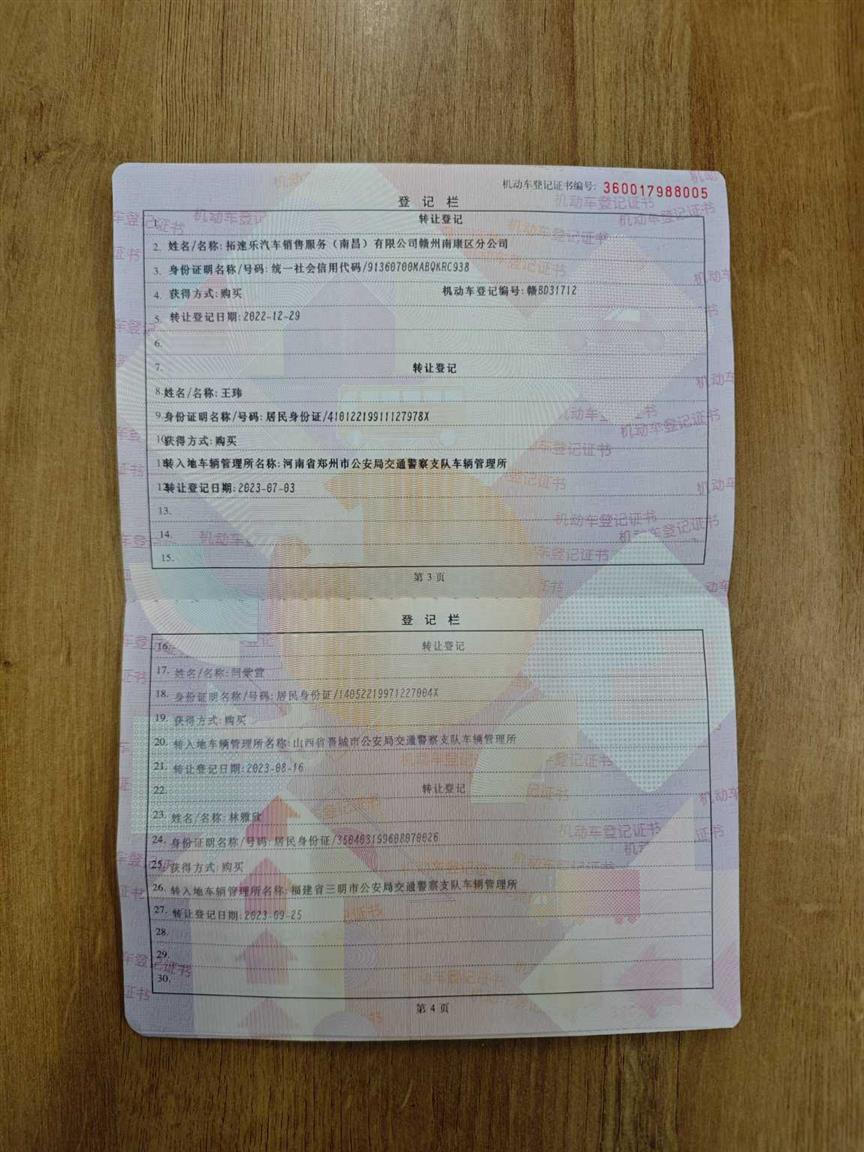 机动车登记证书编号: 360017988005
登 记 栏
1. 转让登记
2. 姓名/名称: 拓速乐汽车销售服务（南昌）有限公司赣州南康区分公司
3. 身份证明名称/号码: 统一社会信用代码/91360700MABQKRC938
4. 获得方式: 购买 机动车登记编号: 赣BD31712
5. 转让登记日期: 2022-12-29
6.
7. 转让登记
8. 姓名/名称: 王玮
9. 身份证明名称/号码: 居民身份证/41012219911127978X
10. 获得方式: 购买
11. 转入地车辆管理所名称: 河南省郑州市公安局交通警察支队车辆管理所
12. 转让登记日期: 2023-07-03
13.
14.
15.
第 3 页
登 记 栏
16. 转让登记
17. 姓名/名称:
18. 身份证明名称/号码: 居民身份证/14052219971227004X
19. 获得方式: 购买
20. 转入地车辆管理所名称: 山西省晋城市公安局交通警察支队车辆管理所
21. 转让登记日期: 2023-08-16
22. 转让登记
23. 姓名/名称: 林雅欣
24. 身份证明名称/号码: 居民身份证/
25. 获得方式: 购买
26. 转入地车辆管理所名称: 福建省三明市公安局交通警察支队车辆管理所
27. 转让登记日期: 2023-09-25
28.
29.
30.
第 4 页